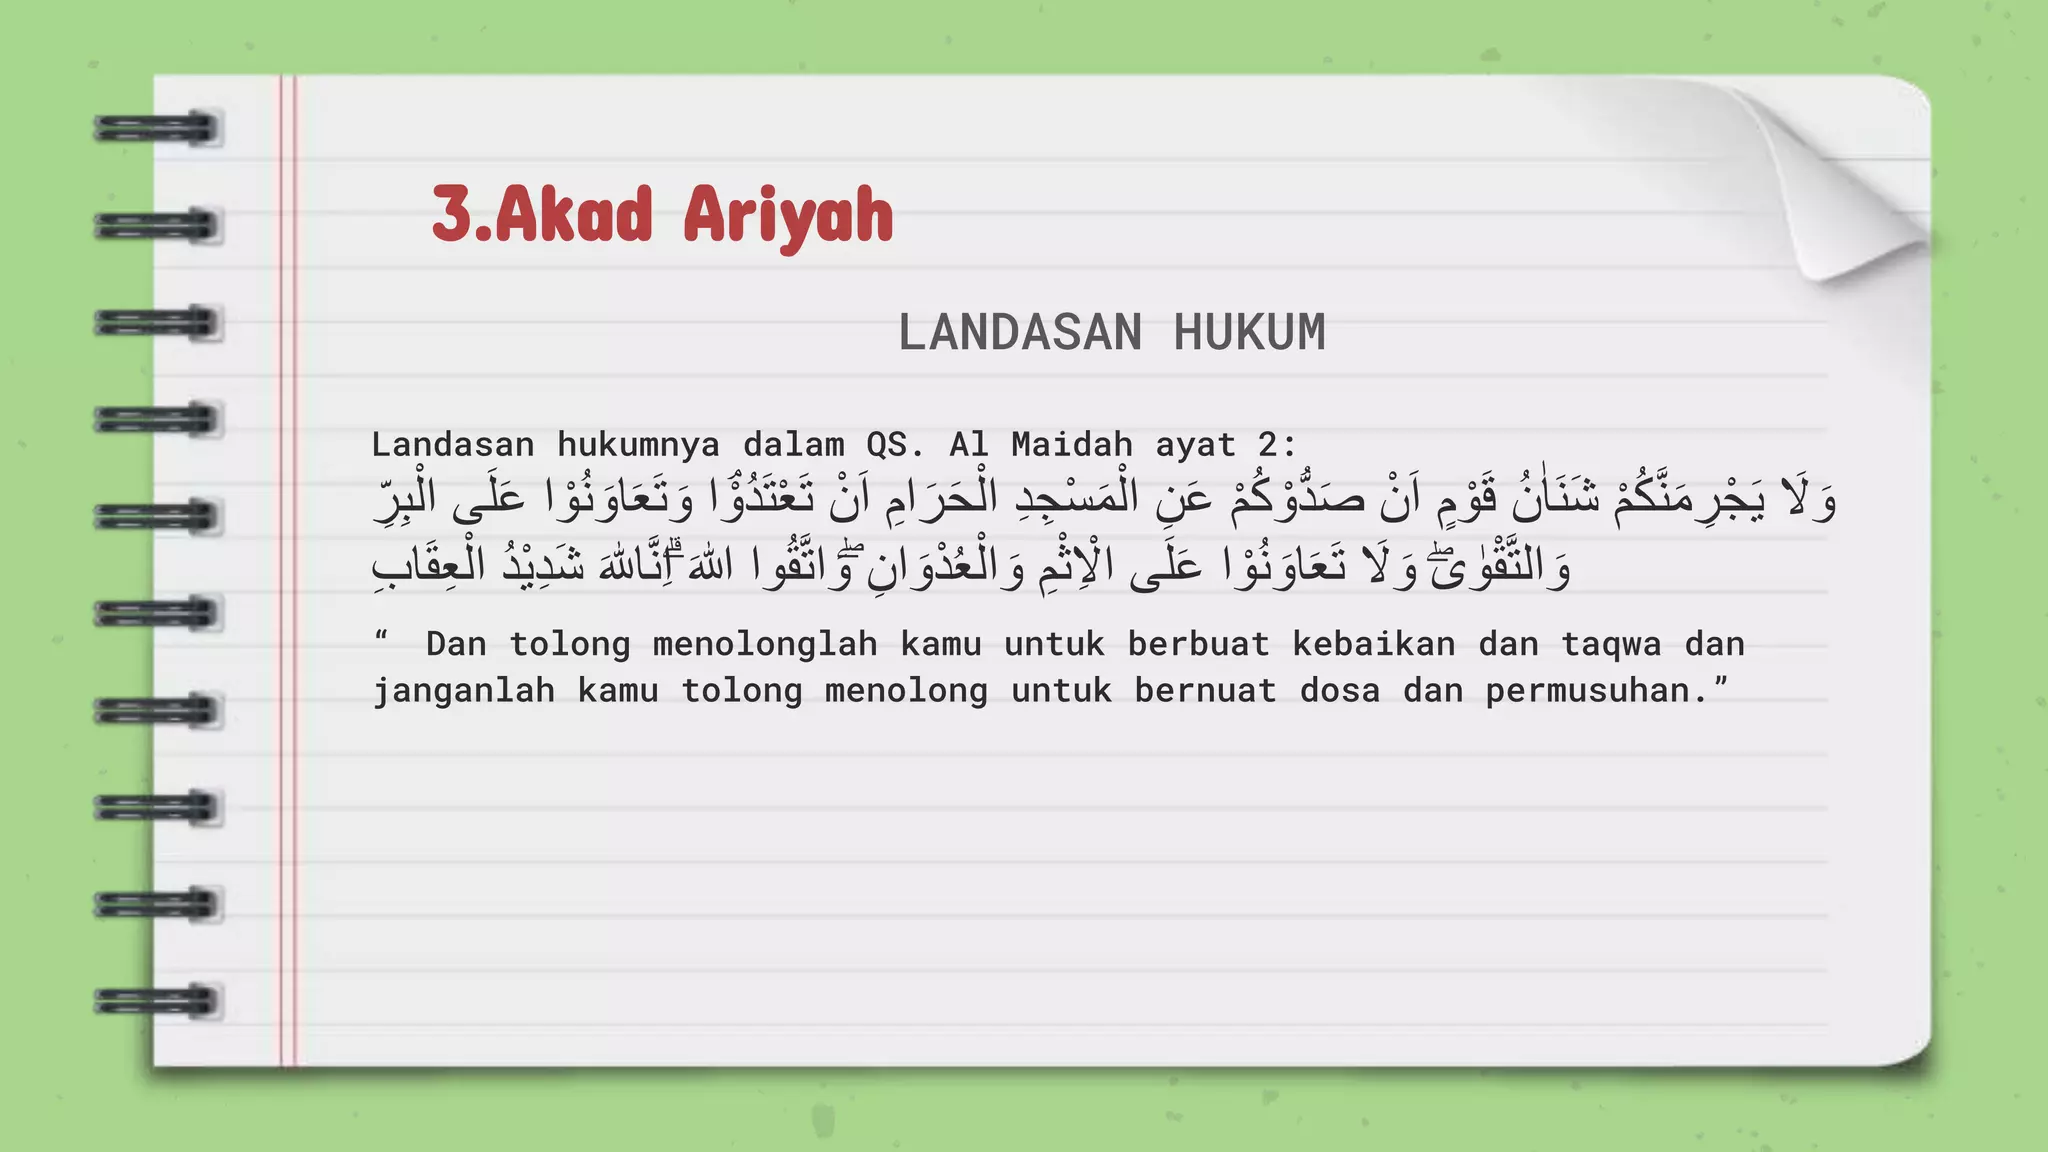 3.Akad Ariyah
LANDASAN HUKUM
Landasan hukumnya dalam QS. Al Maidah ayat 2:
وَلَا يَجْرِمَنَّكُمْ شَنَاٰنُ قَوْمٍ اَنْ صَدُّوْكُمْ عَنِ الْمَسْجِدِ الْحَرَامِ اَنْ تَعْتَدُوْاۘ وَتَعَاوَنُوْا عَلَى الْبِرِّ
وَالتَّقْوٰىۖ وَلَا تَعَاوَنُوْا عَلَى الْاِثْمِ وَالْعُدْوَانِۖ وَاتَّقُوا اللهَ ۗاِنَّاللهَ شَدِيْدُ الْعِقَابِ
“ Dan tolong menolonglah kamu untuk berbuat kebaikan dan taqwa dan
janganlah kamu tolong menolong untuk bernuat dosa dan permusuhan.”